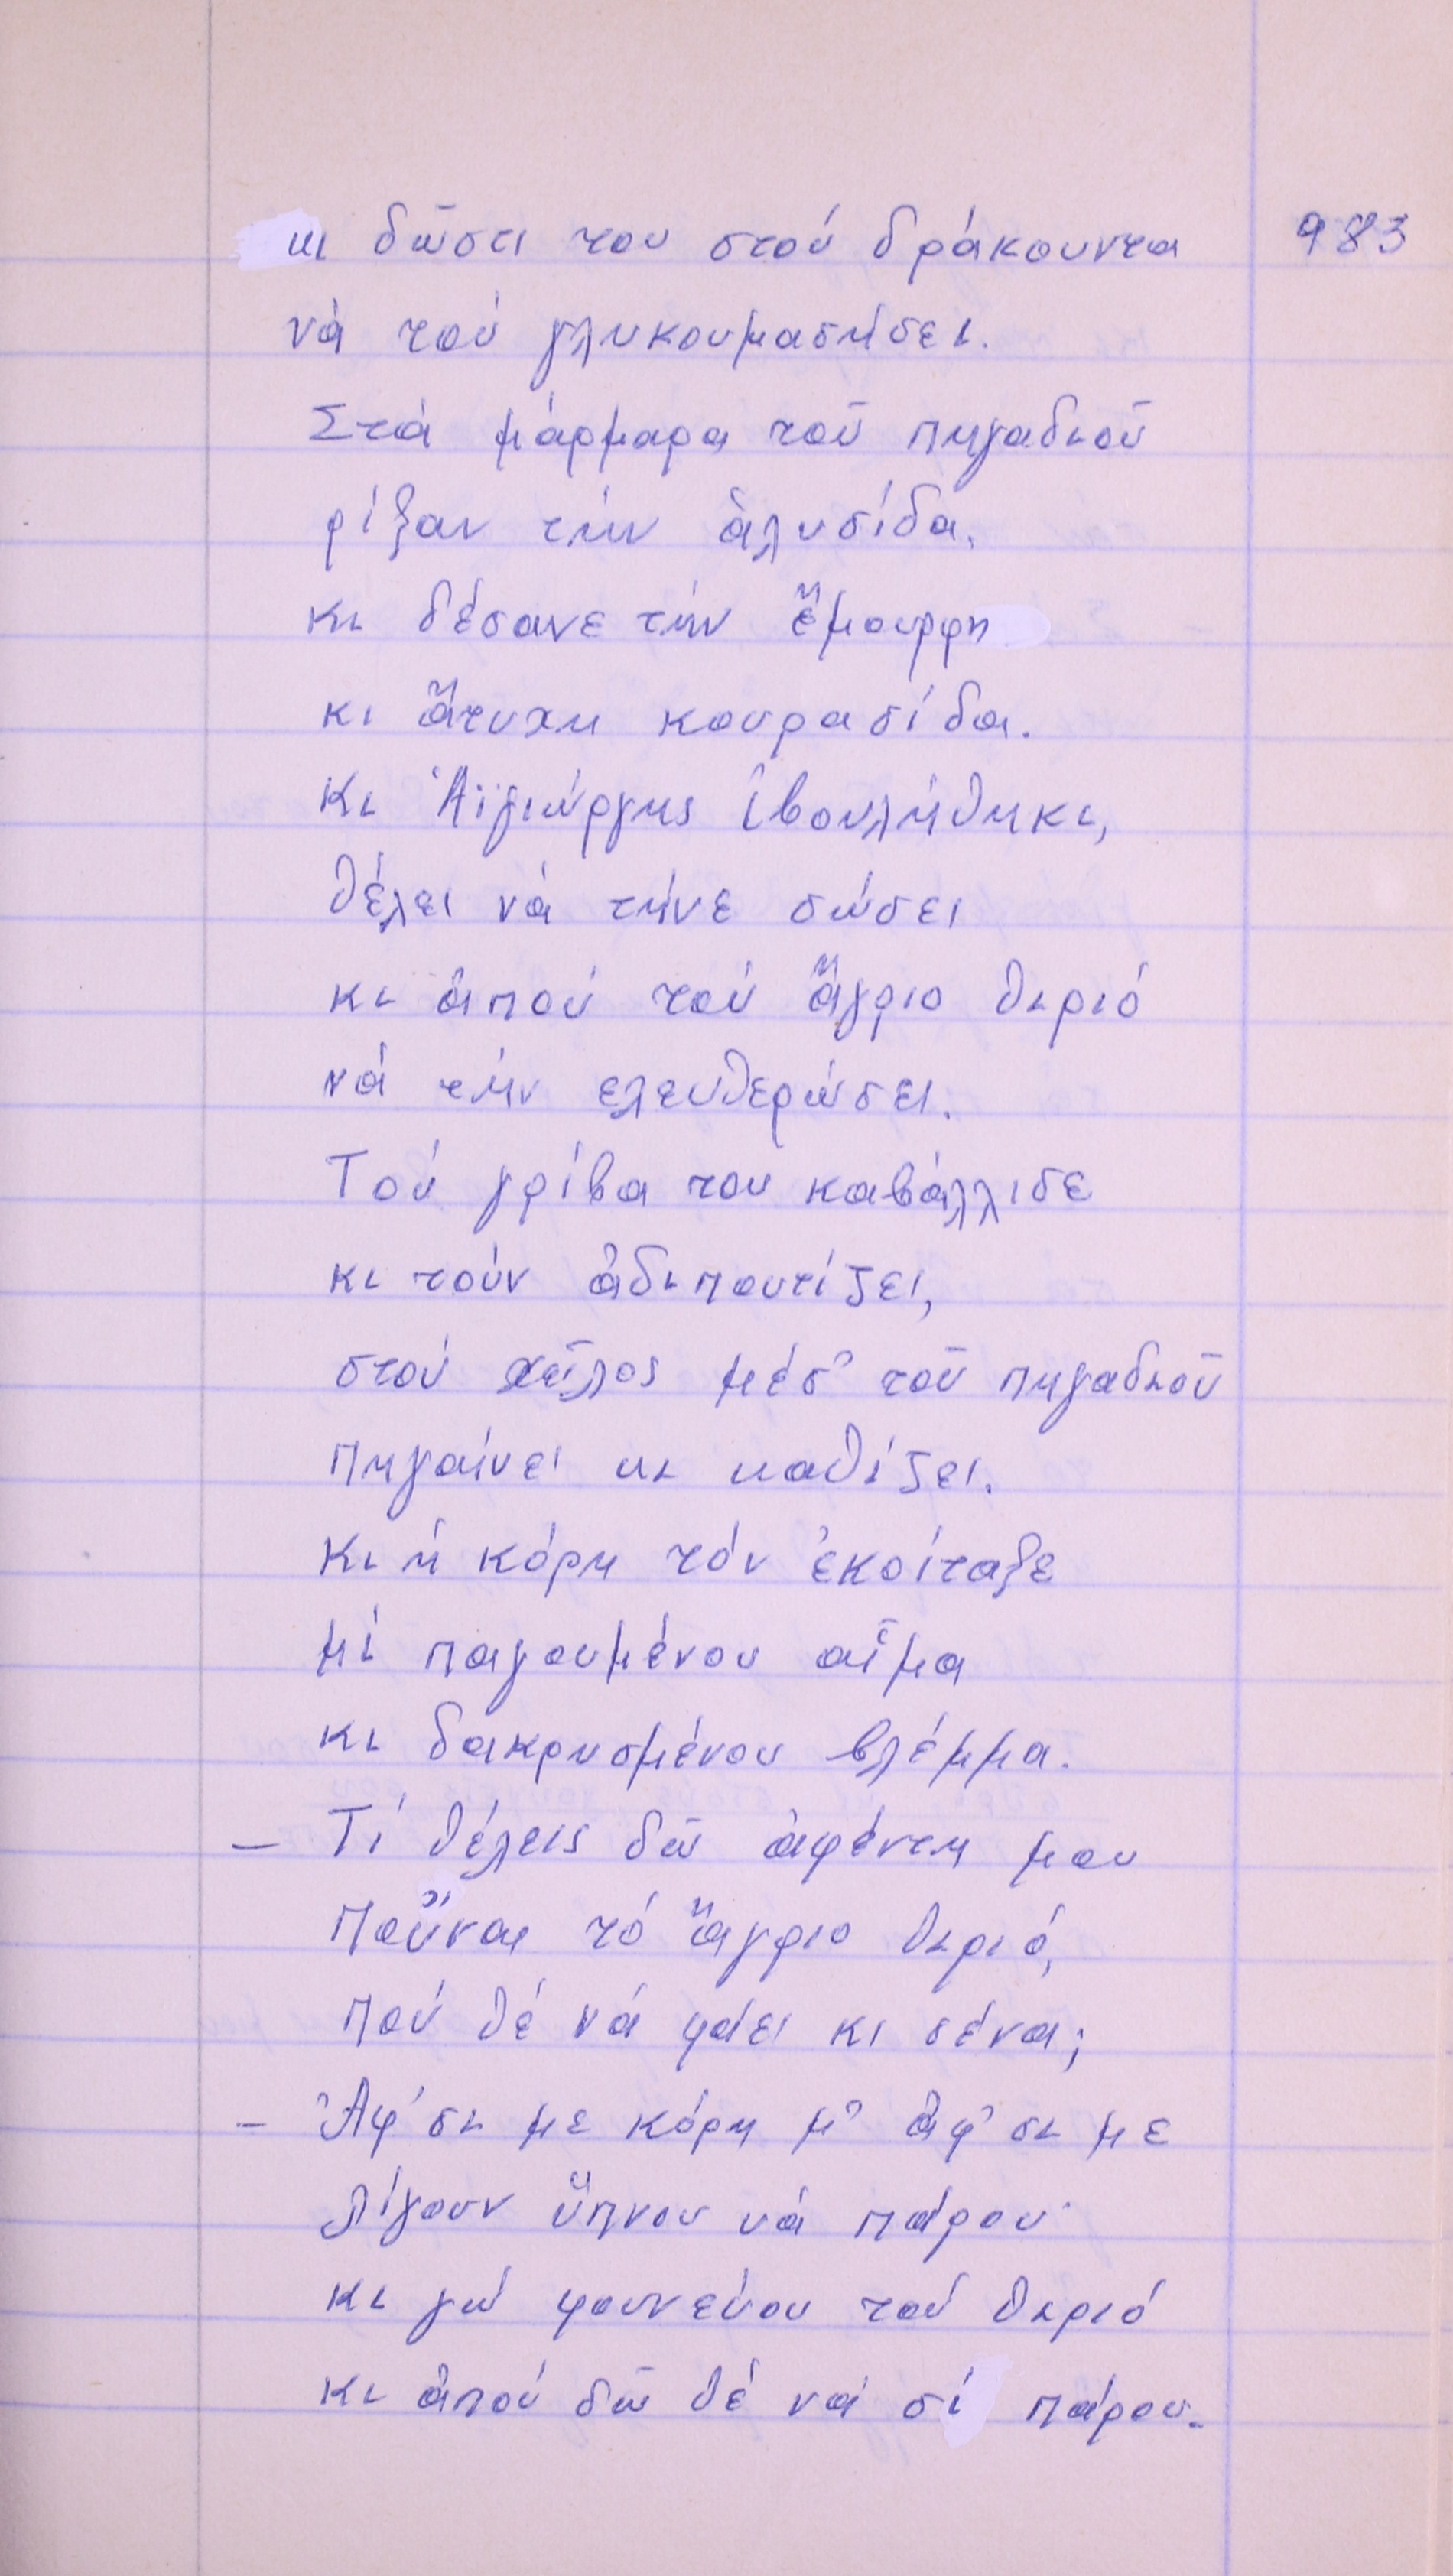 κι δῶστι του στού δράκουντα 983
νά τού γλυκουμασήσει.
Στά μάρμαρα τοῦ πηγαδιοῦ
ρίξαν τήν ἁλυσίδα,
κι δέσανε τήν ἔμουρφη
κι ἄτυχη κουρασίδα.
Κι Ἁϊγιώργης ἰβουλήθηκι,
θέλει νά τήνε σώσει
κι ἀπού τού ἄγριο θιριό
νά τήν ελευθερώσει.
Τού γρίβα του καβάλλισε
κι τούν ἀδιπουτίζει,
στού χεῖλος μέσ' τοῦ πηγαδιοῦ
πηγαίνει κι καθίζει.
Κι ἡ κόρη τόν ἐκοίταξε
μί παγουμένου αἷμα
κι δακρυσμένου βλέμμα.
– Τί θέλεις δῶ ἀφέντη μου
Ποὔναι τό ἄγριο θιριό,
πού θέ νά φάει κι σένα;
– Ἀφ'σι με κόρη μ' ἀφ'σι με
λίγουν ὕπνου νά πάρου
κι γώ φουνεύου τού θιριό
κι ἀπού δῶ θέ νά σί πάρου.